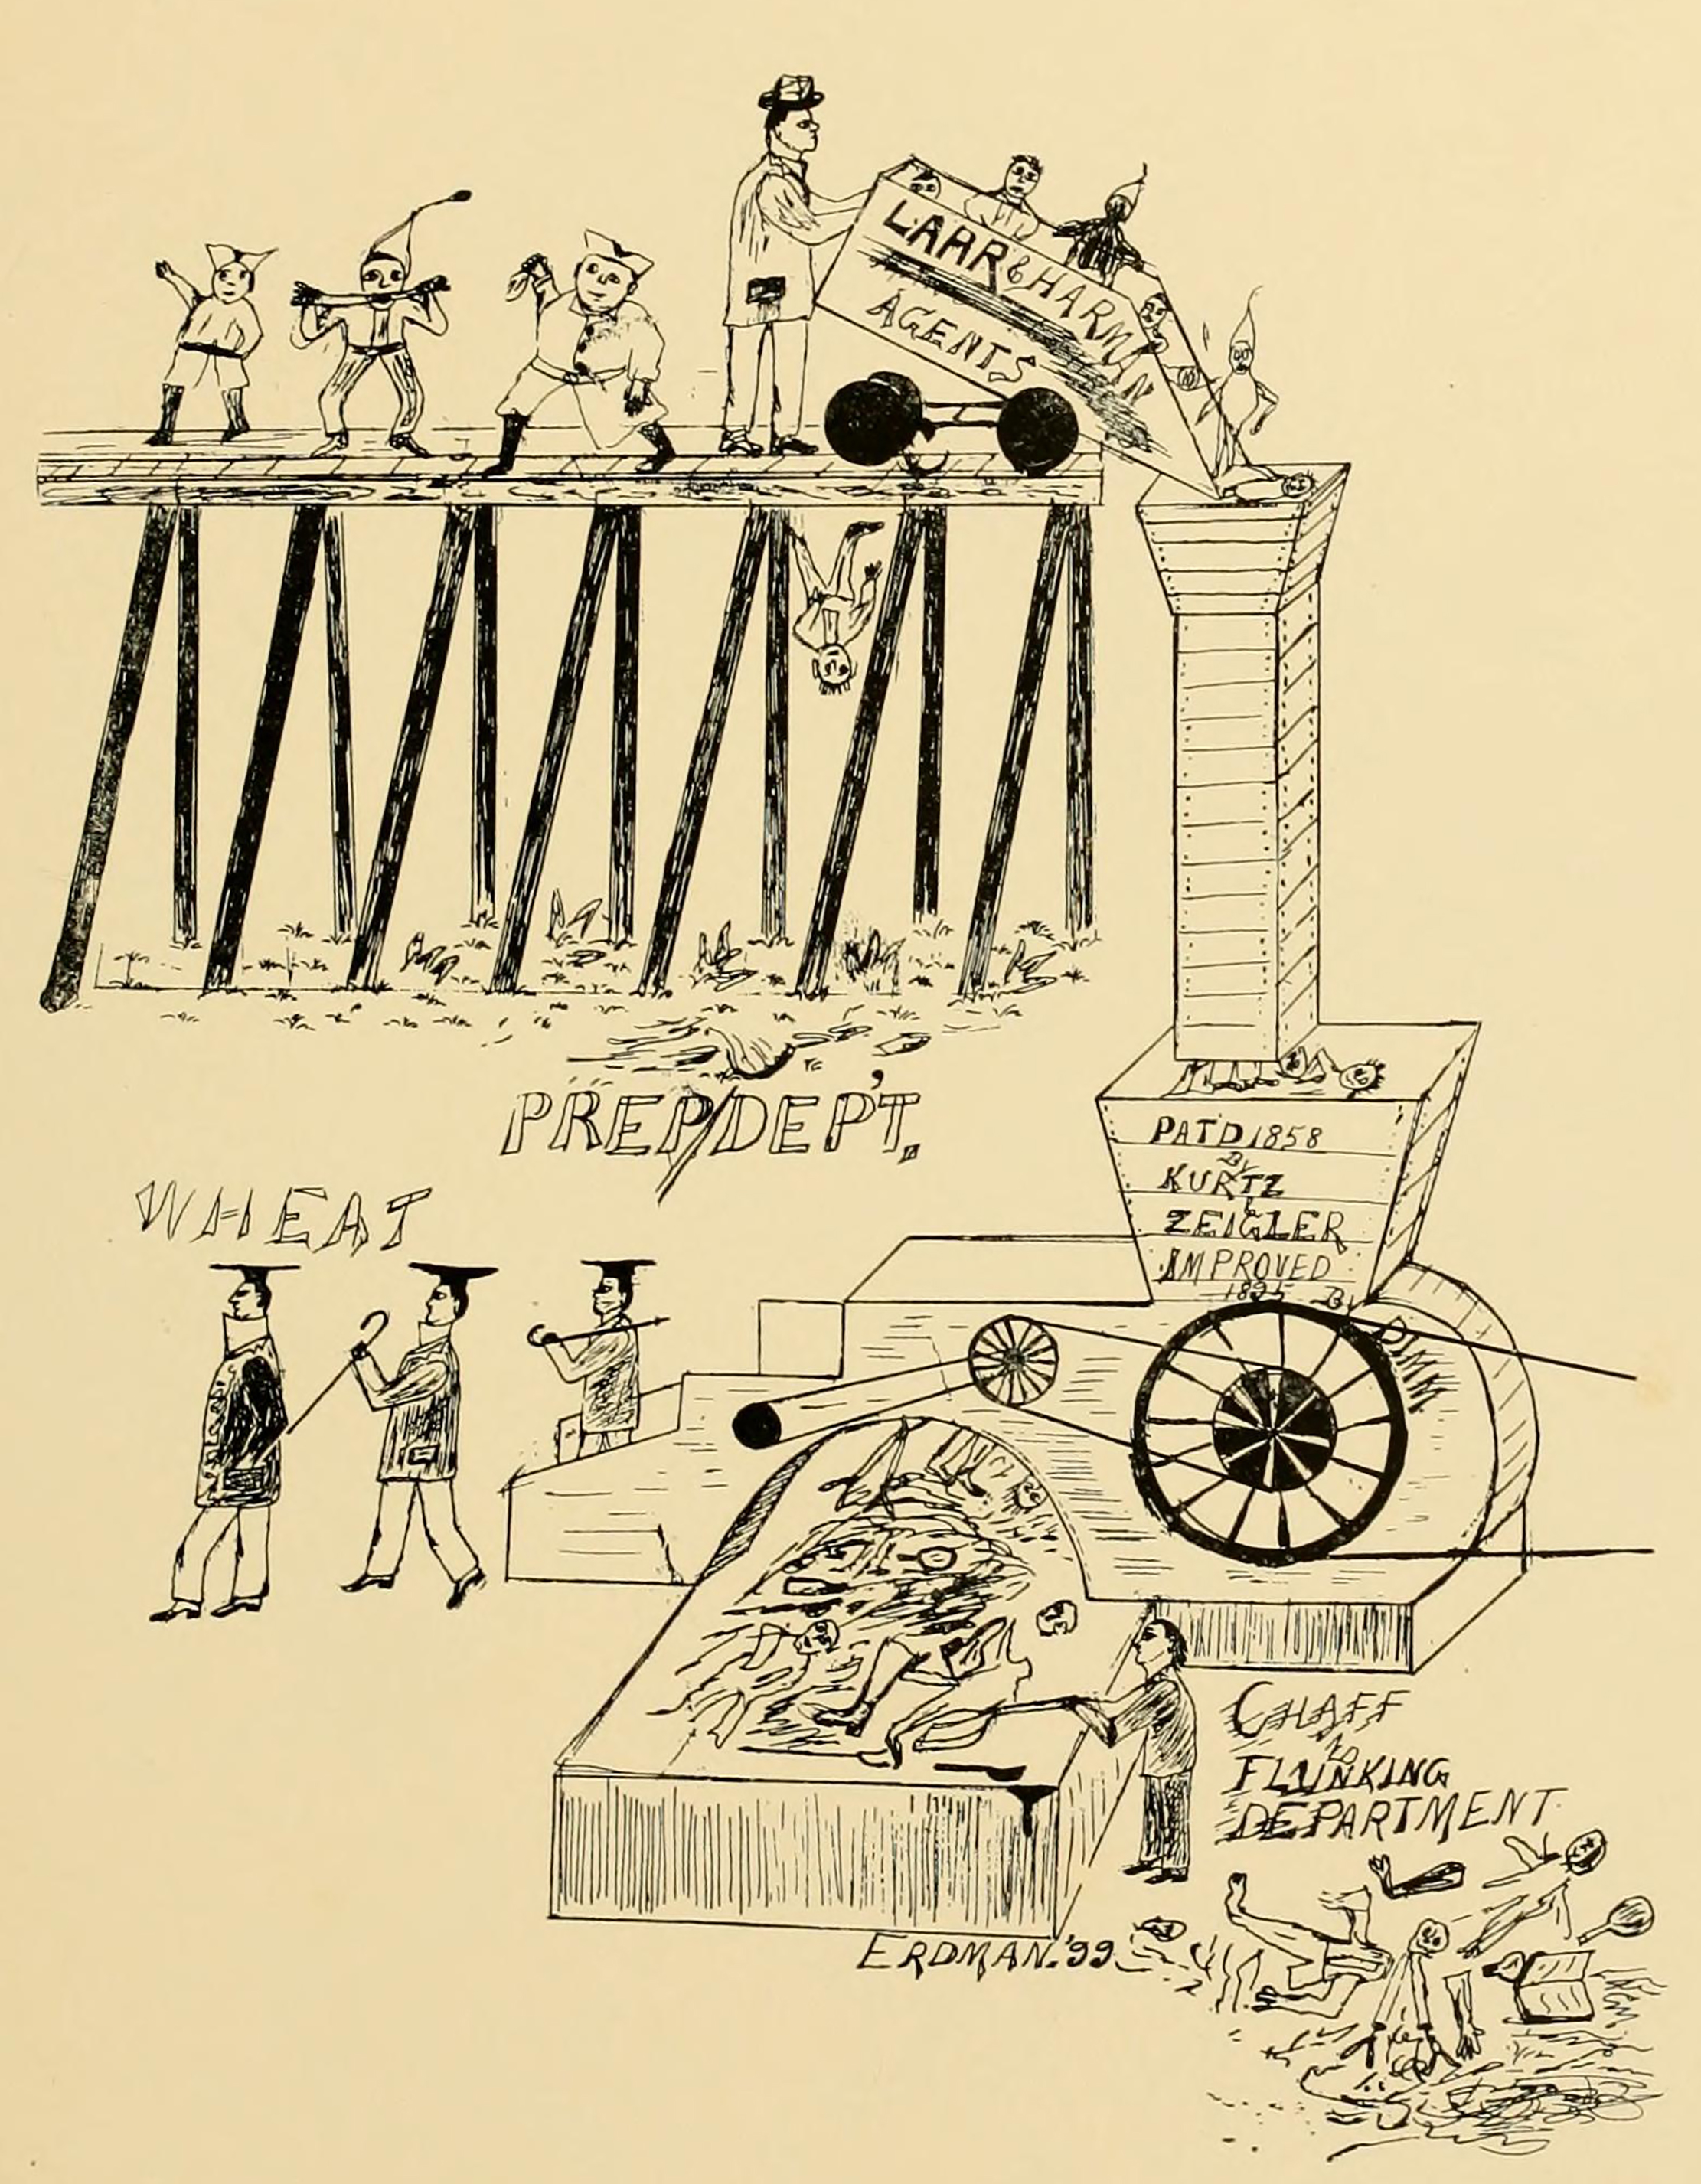 LARR & HARMAN
AGENTS
PREP/DEP'T.
WHEAT
PATD 1858
BY
KURTZ
&
ZEIGLER
IMPROVED
1895 BY
DIMM
CHAFF
TO
FLUNKING
DEPARTMENT.
ERDMAN. '99